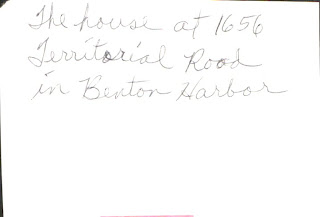 The house at 1656
Territorial Road
in Benton Harbor